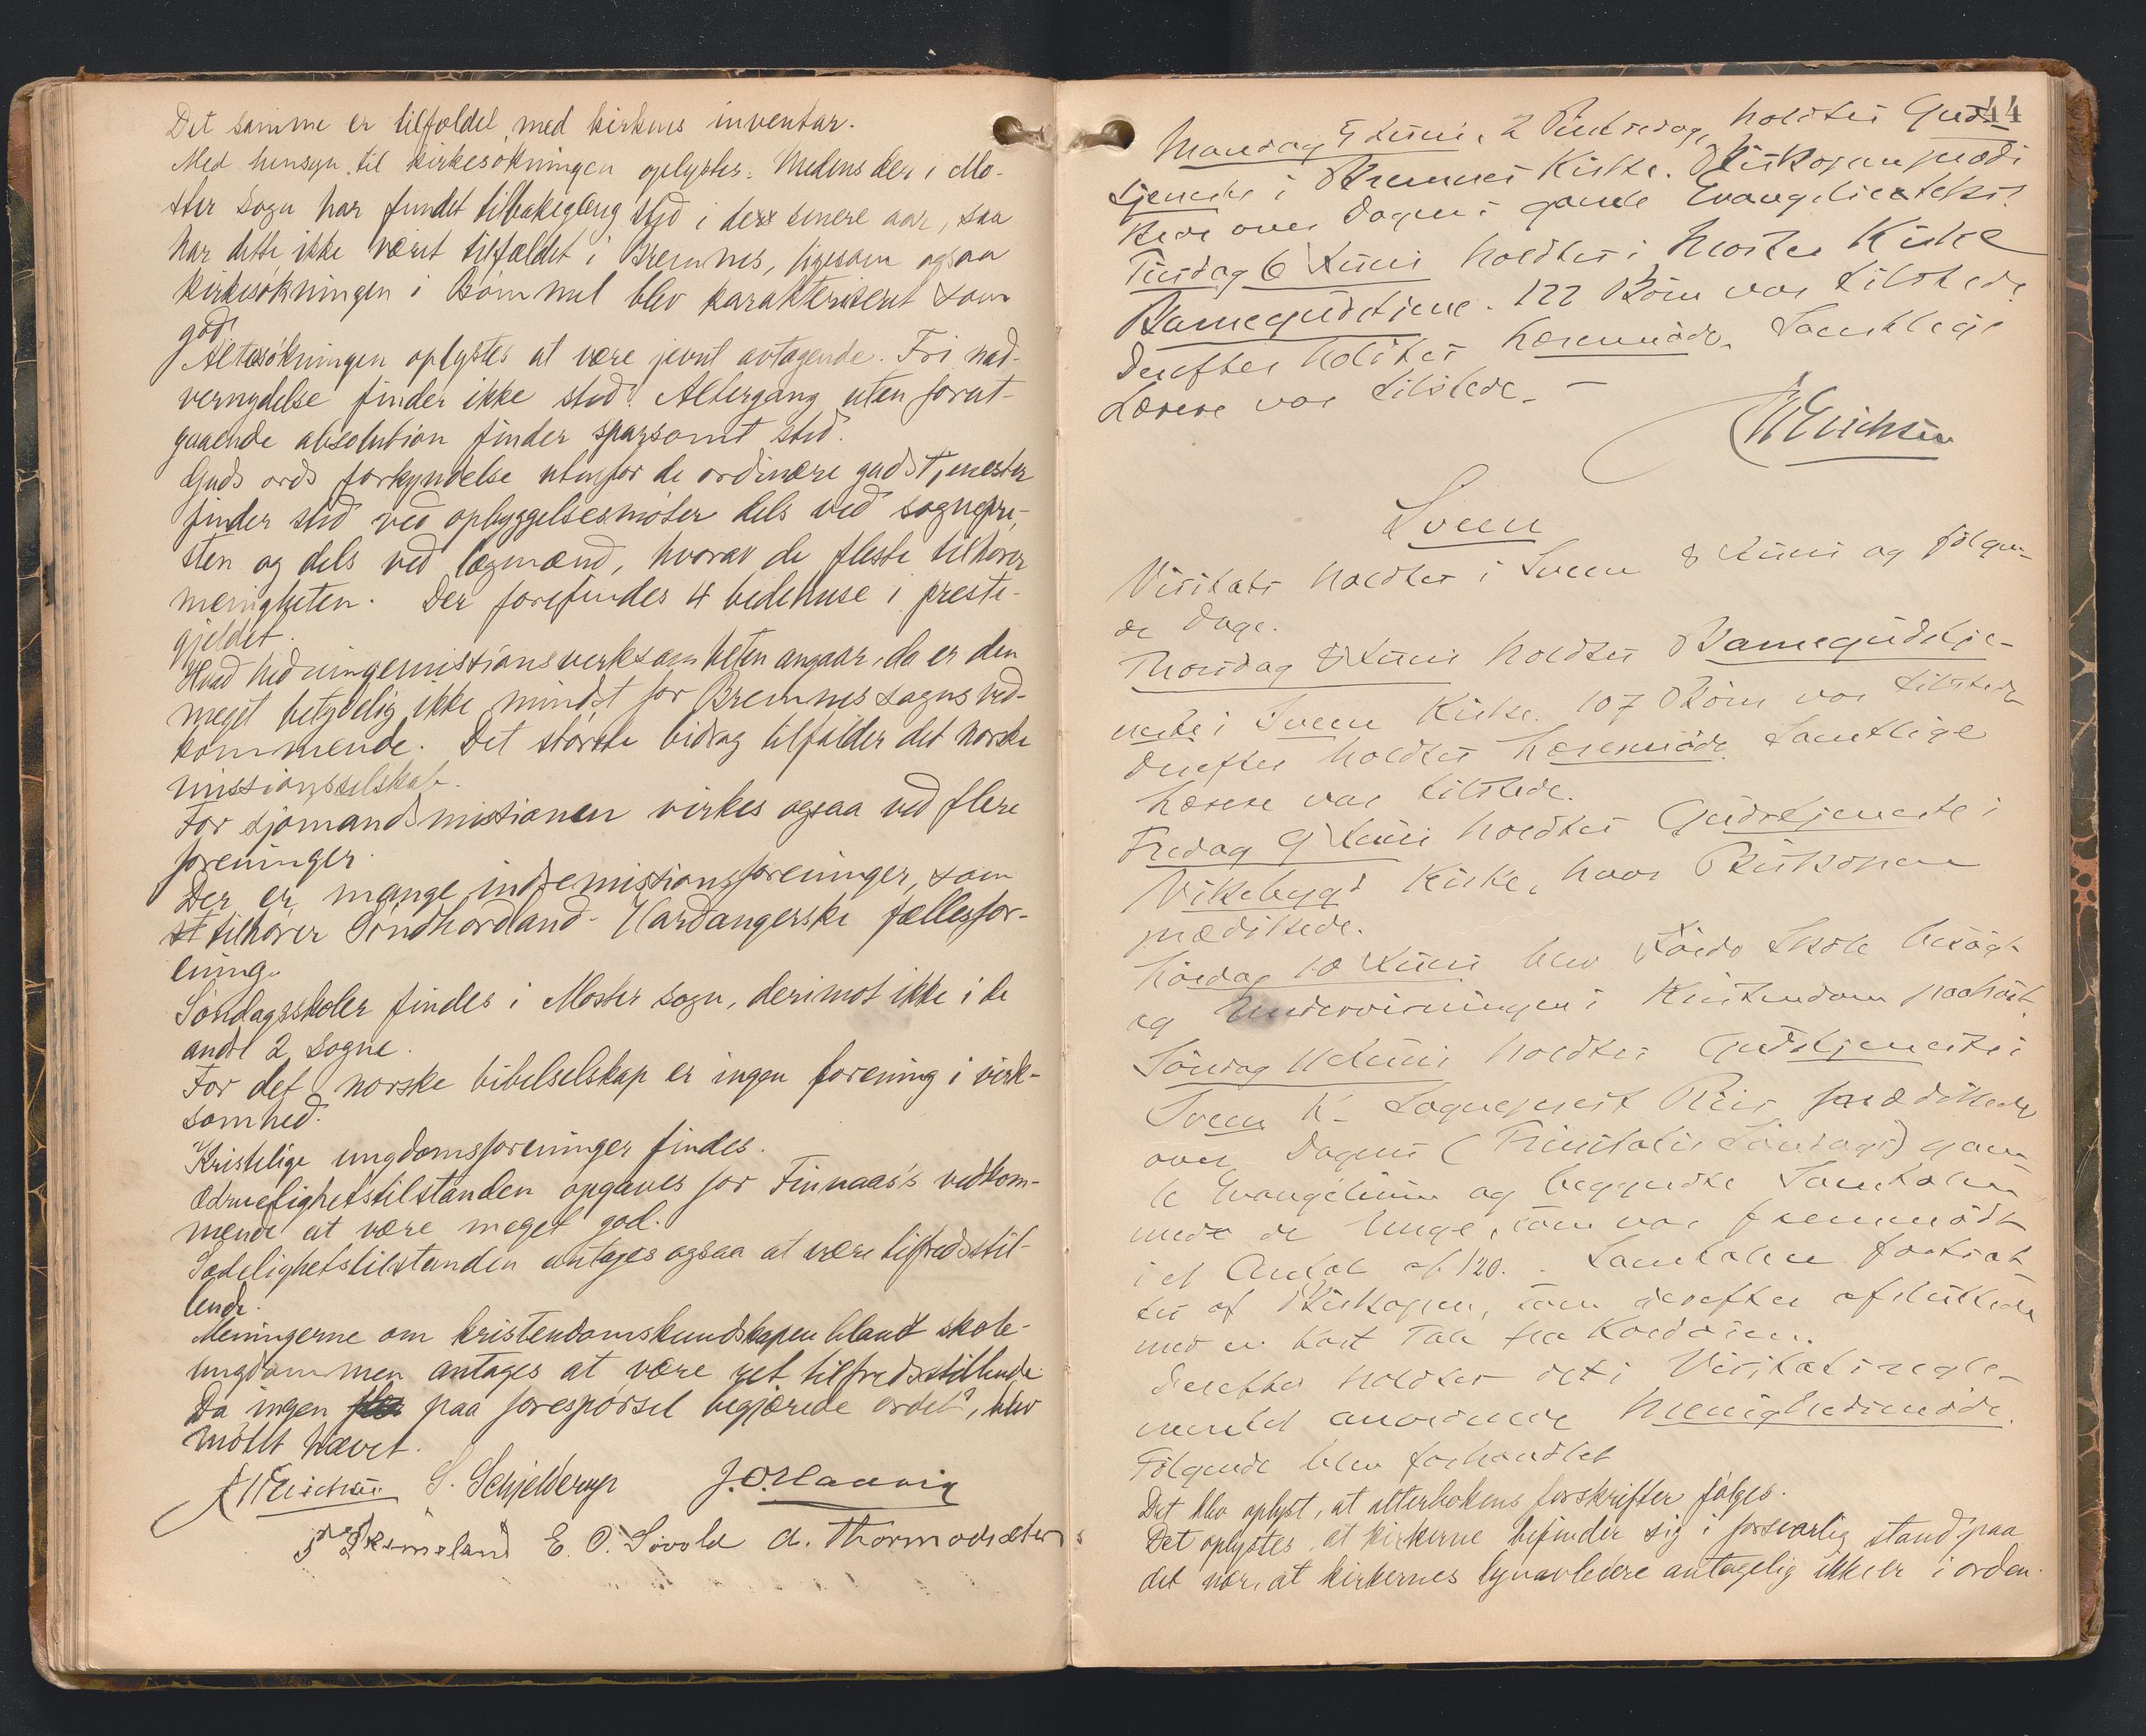 Det samme er tilfældet med kirkens inventar.
Med hensyn til kirkesökningen oplystes: Medens der i Mo-
ster sogn har fundet tilbakegang sted i de senere aar, saa
har dette ikke været tilfældet i Bremnes, ligesom ogsaa
kirkesökningen i Bömmel blev karakteriseret som
god.
Altersökningen oplystes at være jevnt avtagende. Fri nad-
vernydelse finder ikke sted. Altergang uten forut-
gaaende absolution finder sparsomt sted.
Guds ords forkyndelse utenfor de ordinære gudstjenester
finder sted ved opbyggelsesmöter dels ved sognepre-
sten og dels ved lægmænd, hvorav de fleste tilhörer
menigheten. Der forefindes 4 bedehuse i preste-
gjeldet.
Hvad hedningemissionsverksamheten angaar, da er den
meget betydelig ikke mindst for Bremnes sogns ved-
kommende. Det störste bidrag tilfalder det norske
missionsselskab.
For sjömandsmissionen virkes ogsaa ved flere
foreninger.
Der er mange indremissionsforeninger, som
tilhörer Söndhordland-Hardangerske fællesfor-
ening.
Söndagsskoler findes i Moster sogn, derimot ikke i de
andre 2 sogne.
For det norske bibelselskap er ingen forening i virk-
somhed.
Kristelige ungdomsforeninger findes.
Ædruelighetstilstanden opgaves for Finnaas's vedkom-
mende at være meget god.
Sædelighetstilstanden antages ogsaa at være tilfredsstil-
lende.
Meningerne om kristendomskundskapen blandt skole-
ungdommen antages at være ret tilfredsstillende.
Da ingen paa forespörsel begjærede ordet, blev
mötet hævet.
J W Erichsen S. Schjelderup
E. O. Sövold A. Thormodsæter
44
Mandag 5 Juni, 2 Pintsedag, holdtes Guds
tjeneste i Bremnes Kirke. Biskopen prædi
kede over Dagens gamle Evangelietekst.
Tirsdag 6 Juni holdtes i Moster Kirke
Barnegudstjene. 122 Börn var tilstede.
Derefter holdtes Læremöde. Samtlige
Lærere var tilstede. –
J W Erichsen
Sveen
Visitats holdtes i Sveen 8 Juni og fölgen-
de Dage.
Thorsdag 8 Juni holdtes Barnegudstje-
neste i Sveen Kirke. 107 Börn var tilstede
Derefter holdtes Læremöde. Samtlige
Lærere var tilstede.
Fredag 9 Juni holdtes Gudstjeneste i
Vikebygd Kirke, hvor Biskopen
prædikede.
Lördag 10 Juni blev Skole besögt
og Undervisningen i Kristendom paahört.
Söndag 11 Juni holdtes Gudstjeneste i
Sveen K. Sogneprest prædikede
over Dagens (Trinitatis Söndags) gam
le Evangelium og begyndte Samtalen
med de Unge, som var fremmödt
i et Antal af 120. Samtalen fortsat
tes af Biskopen, som derefter afsluttede
med en kort Tale fra Kordören.
Derefter holdtes det i Visitatsregle-
mentet anordnede Menighedsmöde.
Fölgende blev forhandlet
Det blev oplyst, at alterbokens forskrifter fölges.
Det oplystes, at kirkerne befinder sig i forsvarlig stand paa
det nær, at kirkernes lynavledere antagelig ikke er i orden.